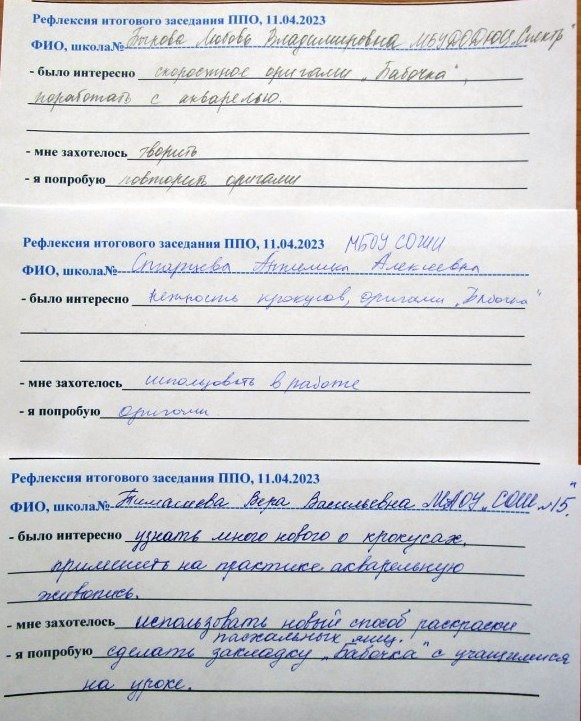 Рефлексия итогового заседания ППО, 11.04.2023
ФИО, школа№ Быкова Любовь Владимировна МБУДО ДЮЦ „Спектр"
- было интересно скоростное оригами „Бабочка",
поработать с акварелью.
- мне захотелось творить
- я попробую повторить оригами
Рефлексия итогового заседания ППО, 11.04.2023 МБОУ СОШИ
ФИО, школа№ Старцева Анжелика Алексеевна
- было интересно нежность крокусов, оригами „Бабочка"
- мне захотелось использовать в работе
- я попробую оригами
Рефлексия итогового заседания ППО, 11.04.2023
ФИО, школа№ Вера Васильевна МАОУ „СОШ №15"
- было интересно узнать много нового о крокусах,
применить на практике акварельную
живопись.
- мне захотелось использовать новый способ раскраски
пасхальных яиц.
- я попробую сделать закладку „Бабочка" с учащимися
на уроке.